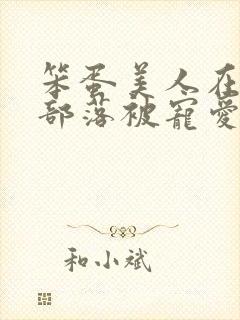 笨蛋美人在
部落被宠爱
和小斌